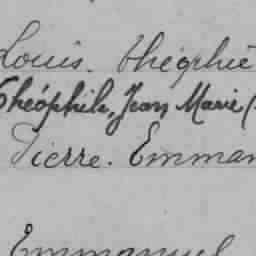 Louis. théophie
Théophile, Jean Marie (
Pierre. Emman
Emmanuel